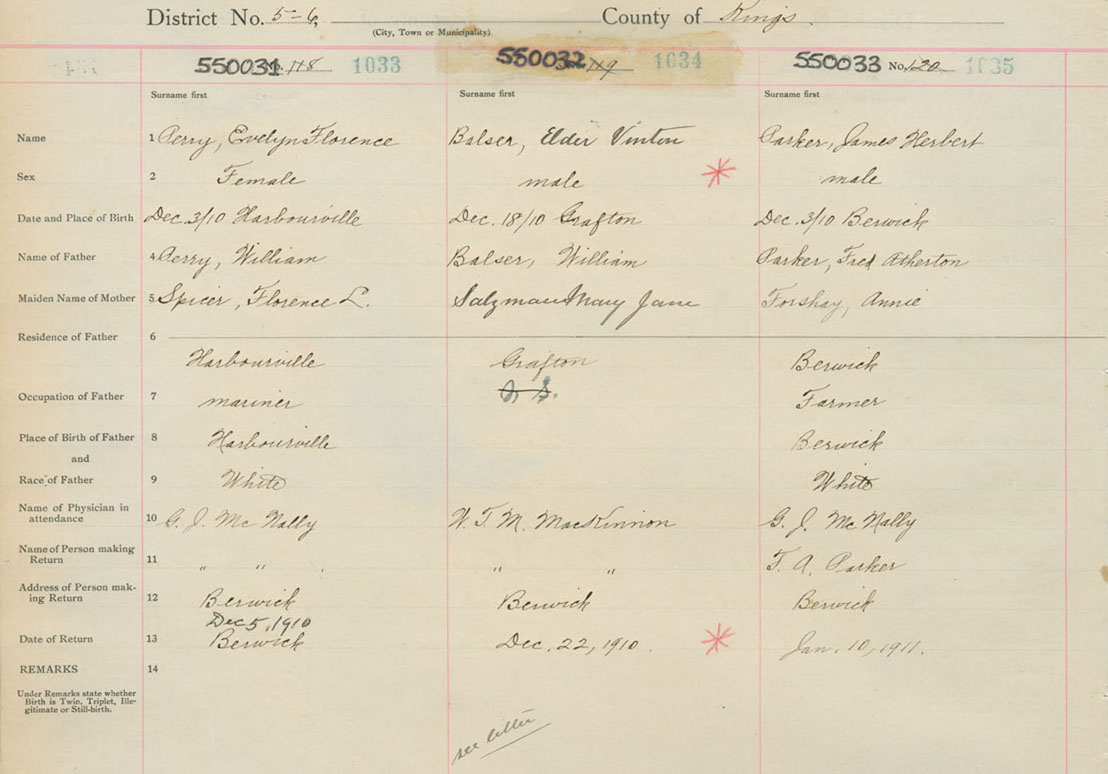 District No. 5-6, County of Kings.
(City, Town or Municipality)
550031 No. 118 1033 550032 No. 119 1034 550033 No. 120 1035
Surname first Surname first Surname first
Name 1 Perry, Evelyn Florence Balser, Elder Vinton Parker, James Herbert
Sex 2 Female male male
Date and Place of Birth Dec. 3/10 Harbourville Dec. 18/10 Grafton Dec. 3/10 Berwick
Name of Father 4 Perry, William Balser, William Parker, Fred Atherton
Maiden Name of Mother 5 Spicer, Florence L. Salzman Mary Jane Forshay, Annie
Residence of Father 6
Harbourville Grafton Berwick
Occupation of Father 7 mariner Farmer
Place of Birth of Father 8 Harbourville Berwick
and
Race of Father 9 White White
Name of Physician in
attendance 10 G. J. McNally W. T. M. MacKinnon G. J. McNally
Name of Person making
Return 11 " " " " F. A. Parker
Address of Person mak-
ing Return 12 Berwick Berwick Berwick
Dec 5, 1910
Date of Return 13 Berwick Dec. 22, 1910 Jan. 10, 1911.
REMARKS 14
Under Remarks state whether
Birth is Twin, Triplet, Ille-
gitimate or Still-birth.
see letter